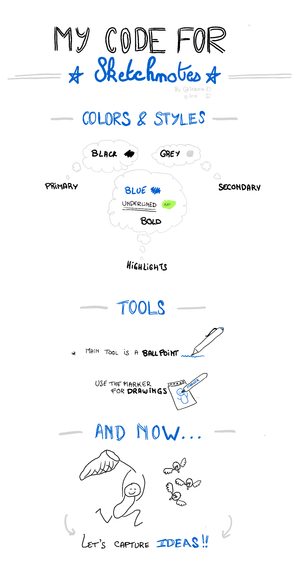 MY CODE FOR
☆ Sketchnotes ☆
COLORS & STYLES
BLACK
GREY
PRIMARY
SECONDARY
BLUE
UNDERLINED
BOLD
HIGHLIGHTS
TOOLS
* MAIN TOOL IS A BALLPOINT
USE THE MARKER
FOR DRAWINGS
AND NOW...
LET'S CAPTURE IDEAS!!